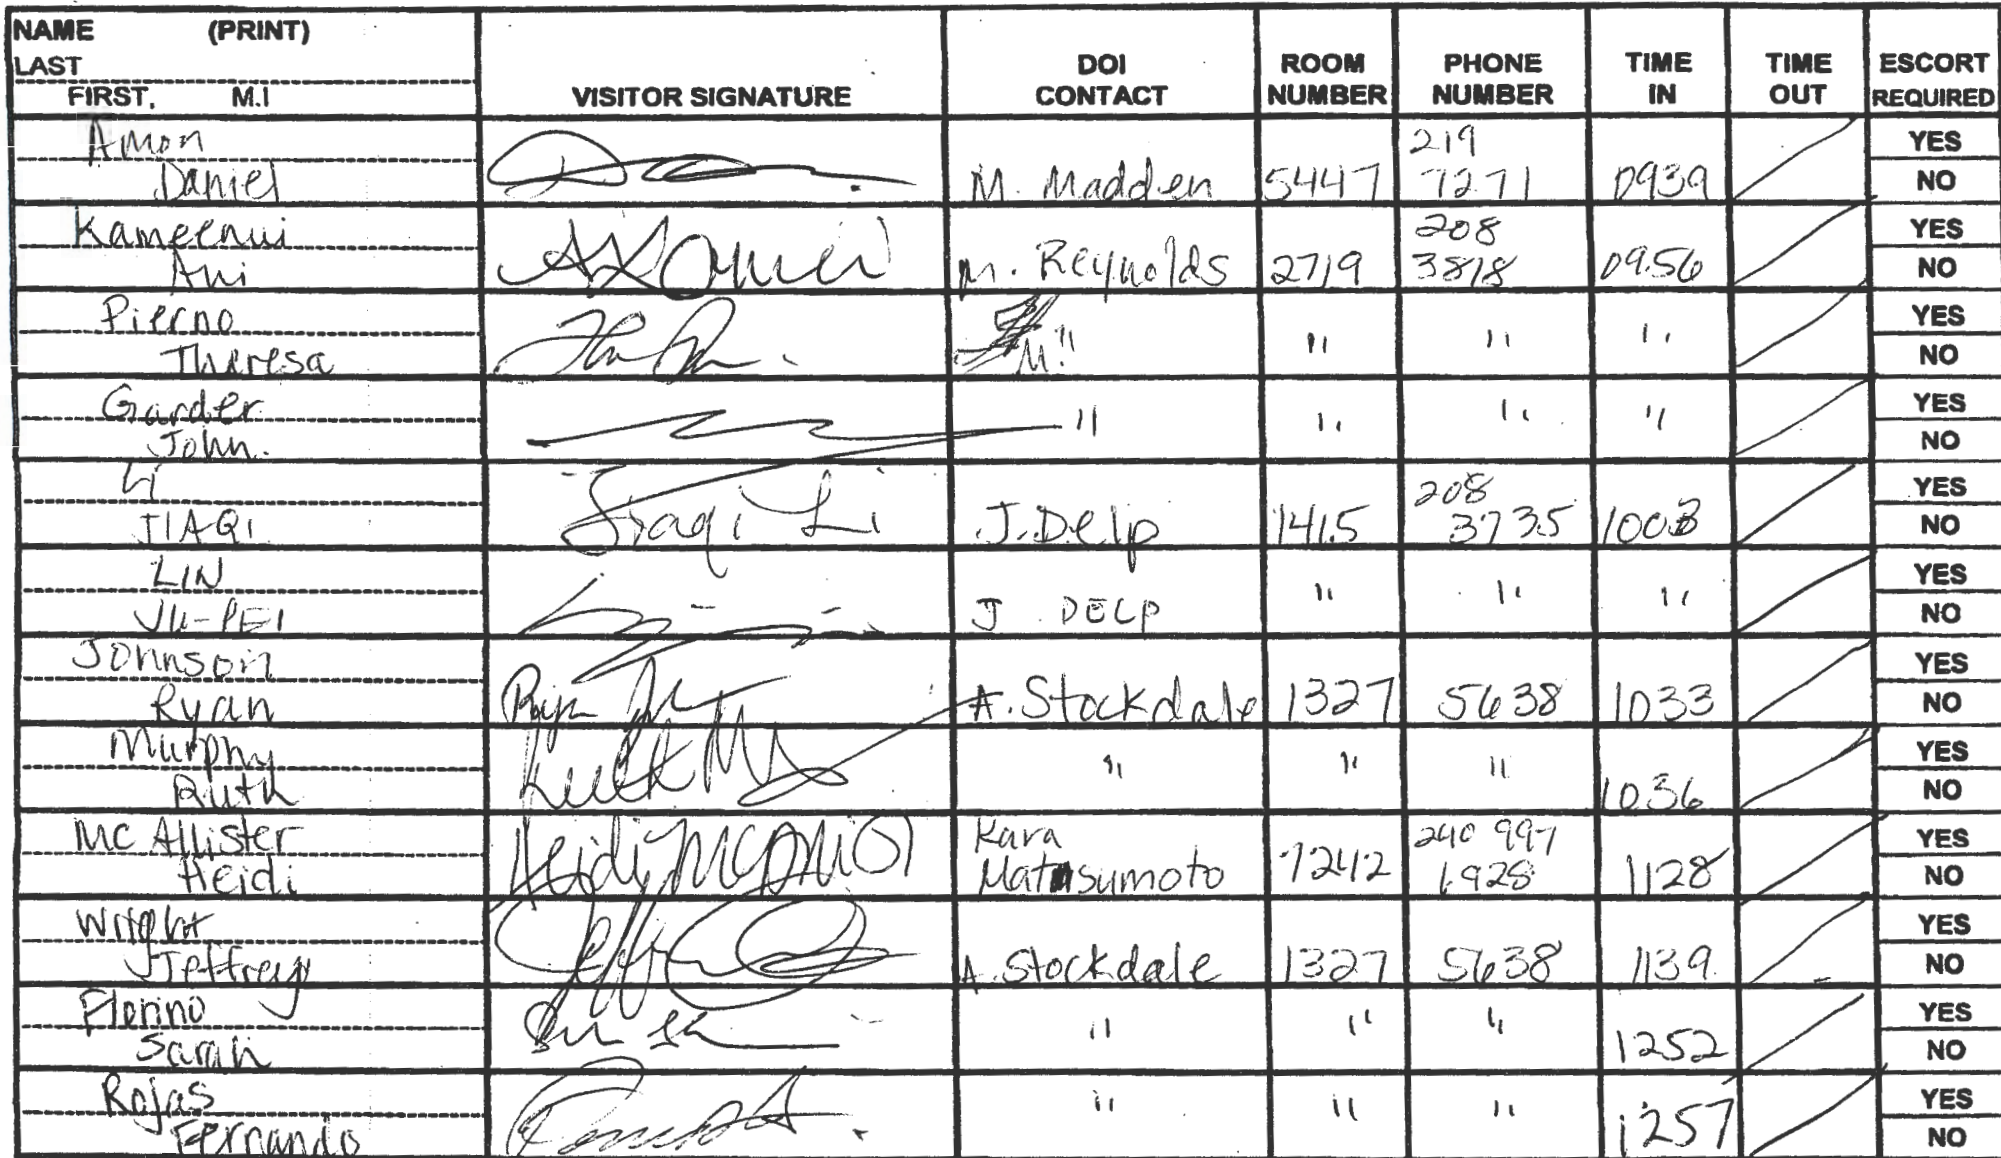 NAME (PRINT)
LAST
FIRST, M.I
VISITOR SIGNATURE
DOI CONTACT
ROOM NUMBER
PHONE NUMBER
TIME IN
TIME OUT
ESCORT REQUIRED
Amon
Daniel
M. Madden 5447 219 7271 0939 YES NO
Kameenui
Ani
M. Reynolds 2719 208 3818 0956 YES NO
Pierno
Theresa
" " " " YES NO
Garder
John.
" " " " YES NO
Li
JIAQI
Jiaqi Li J. Delp 1415 208 3735 1003 YES NO
LIN
YU-PEI
J. DELP " " " YES NO
Johnson
Ryan
A. Stockdale 1327 5638 1033 YES NO
Murphy
Ruth
" " " 1036 YES NO
McAllister
Heidi
Kara Matsumoto 7242 240 997 1928 1128 YES NO
Wright
Jeffrey
A. Stockdale 1327 5638 1139 YES NO
Sarah
" " " 1252 YES NO
Rojas
Fernando
" " " 1257 YES NO